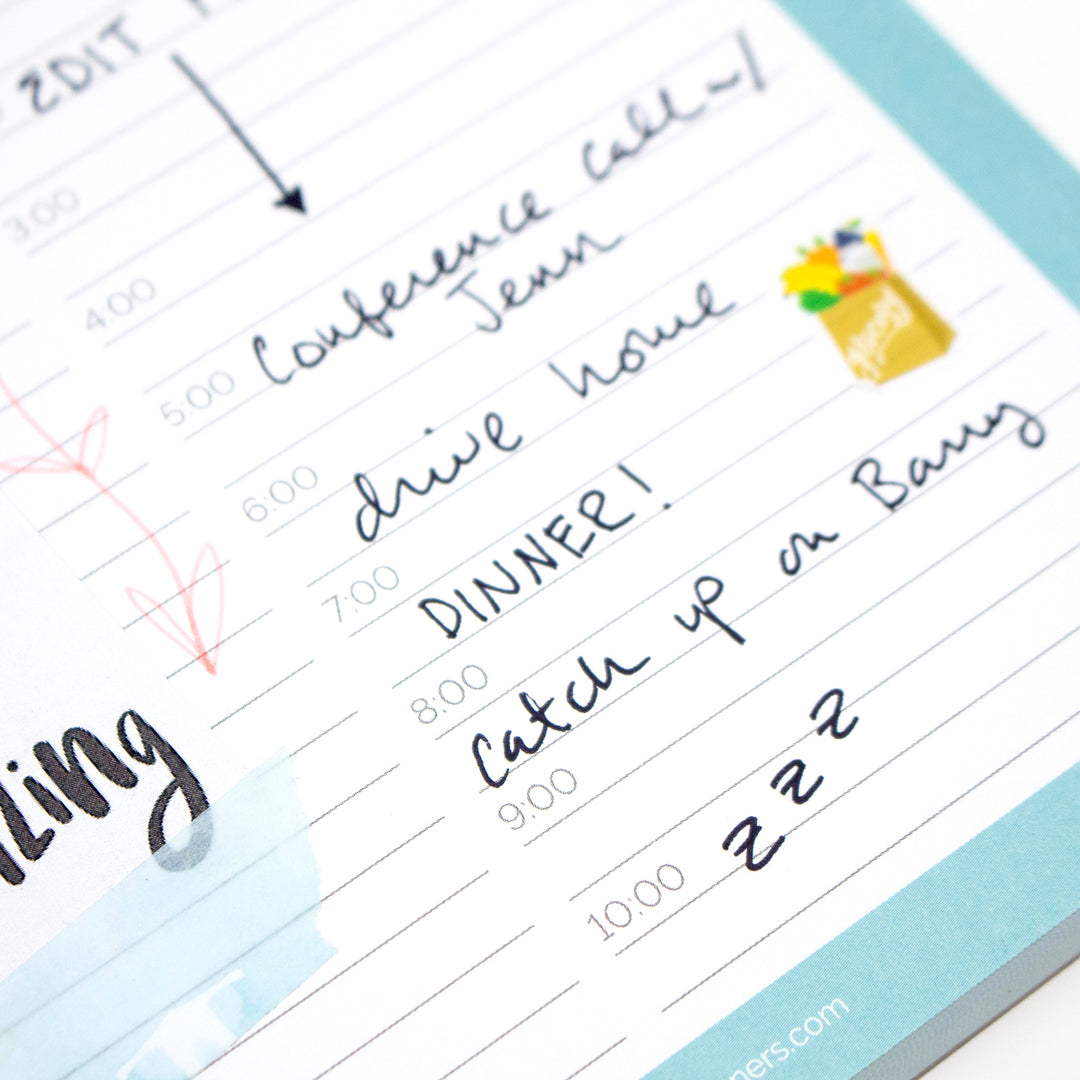 EDIT
3:00
4:00
Conference Call w/
Jenn
5:00
drive home
6:00
DINNER!
7:00
Catch up on Barry
8:00
9:00
zzz
10:00